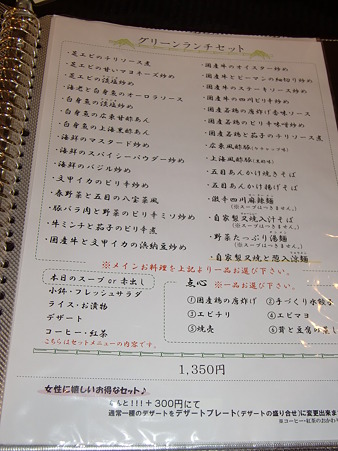 グリーンランチセット
・芝エビのチリソース煮
・芝エビの甘いマヨネーズ炒め
・芝エビの淡塩炒め
・海老と白身魚のオーロラソース
・白身魚の淡塩炒め
・白身魚の広東甘酢あん
・白身魚の上海黒酢あん
・海鮮のマスタード炒め
・海鮮のスパイシーパウダー炒め
・海鮮のバジル炒め
・文甲イカのピリ辛炒め
・春野菜と五目の八宝菜風
・豚バラ肉と野菜のピリ辛ミソ炒め
・牛ミンチと茄子のピリ辛煮
・国産牛と文甲イカの浜納豆炒め
・国産牛のオイスター炒め
・国産牛とピーマンの細切り炒め
・国産牛のステーキソース炒め
・国産牛の四川ピリ辛炒め
・国産若鶏の唐揚げ香味ソース
・国産若鶏のピリ辛味噌炒め
・国産若鶏と茄子のチリソース煮
・広東風酢豚(ケチャップ味)
・上海風酢豚(黒酢味)
・五目あんかけ焼きそば
・五目あんかけ揚げそば
・激辛四川麻辣麺
(※スープはつきません。)
・自家製叉焼入汁そば
(※スープはつきません。)
・野菜たっぷり湯麺
(※スープはつきません。)
・自家製叉焼と葱入涼麺
※メインお料理を上記より一品お選び下さい。
本日のスープ or 赤出し
小鉢・フレッシュサラダ
ライス・お漬物
デザート
コーヒー・紅茶
こちらはセットメニューの内容です。
点心 ※一品お選び下さい。
①国産鶏の唐揚げ
②手づくり水餃子
③エビチリ
④エビマヨ
⑤焼売
⑥茸と豆腐の蒸し
1,350円
女性に嬉しいお得なセット♪
なんと!!!+300円にて
通常一種のデザートをデザートプレート(デザートの盛り合せ)に変更出来ま
※コーヒー・紅茶のおかわり